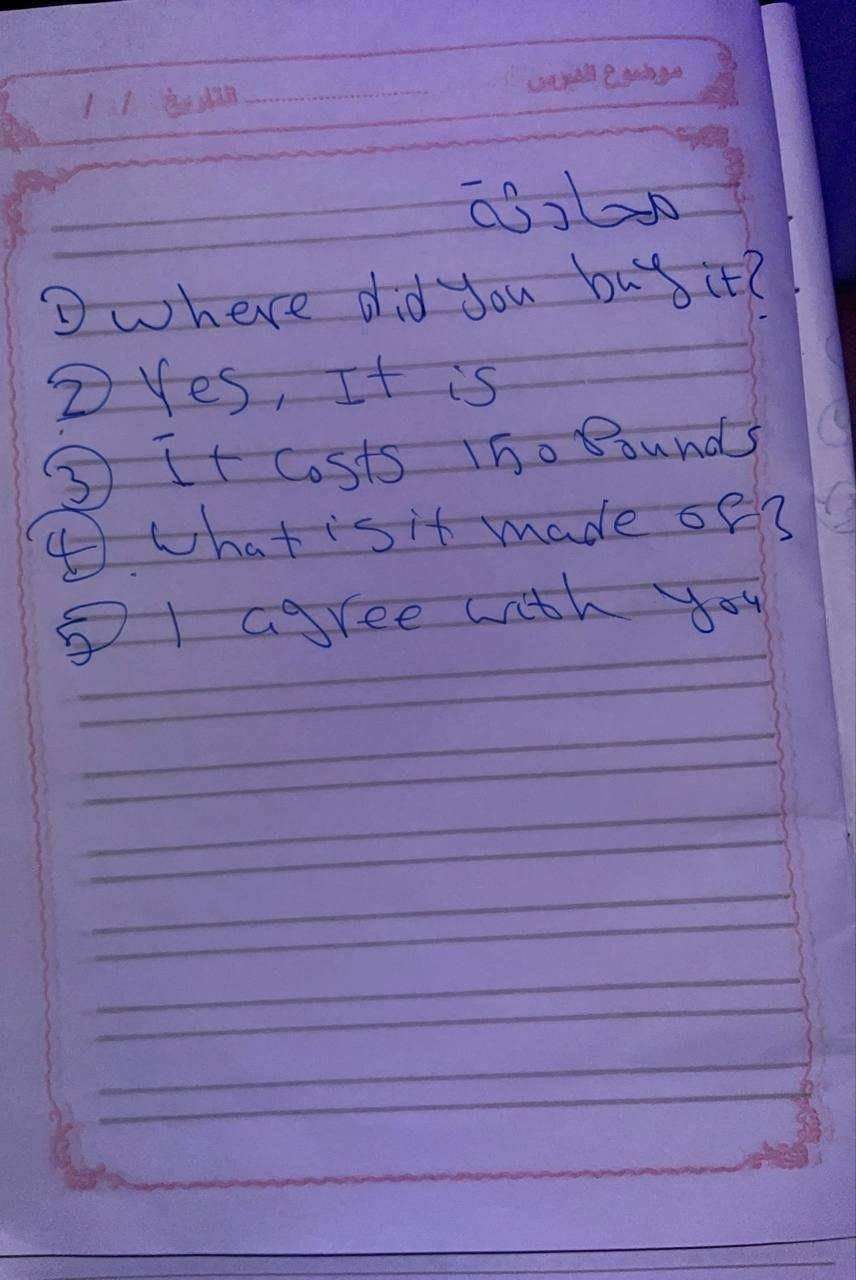 موضوع الدرس .................... التاريخ / /
محادثة
1) Where did you buy it?
2) Yes, It is
3) It costs 150 Pounds
4) What is it made of?
5) I agree with you